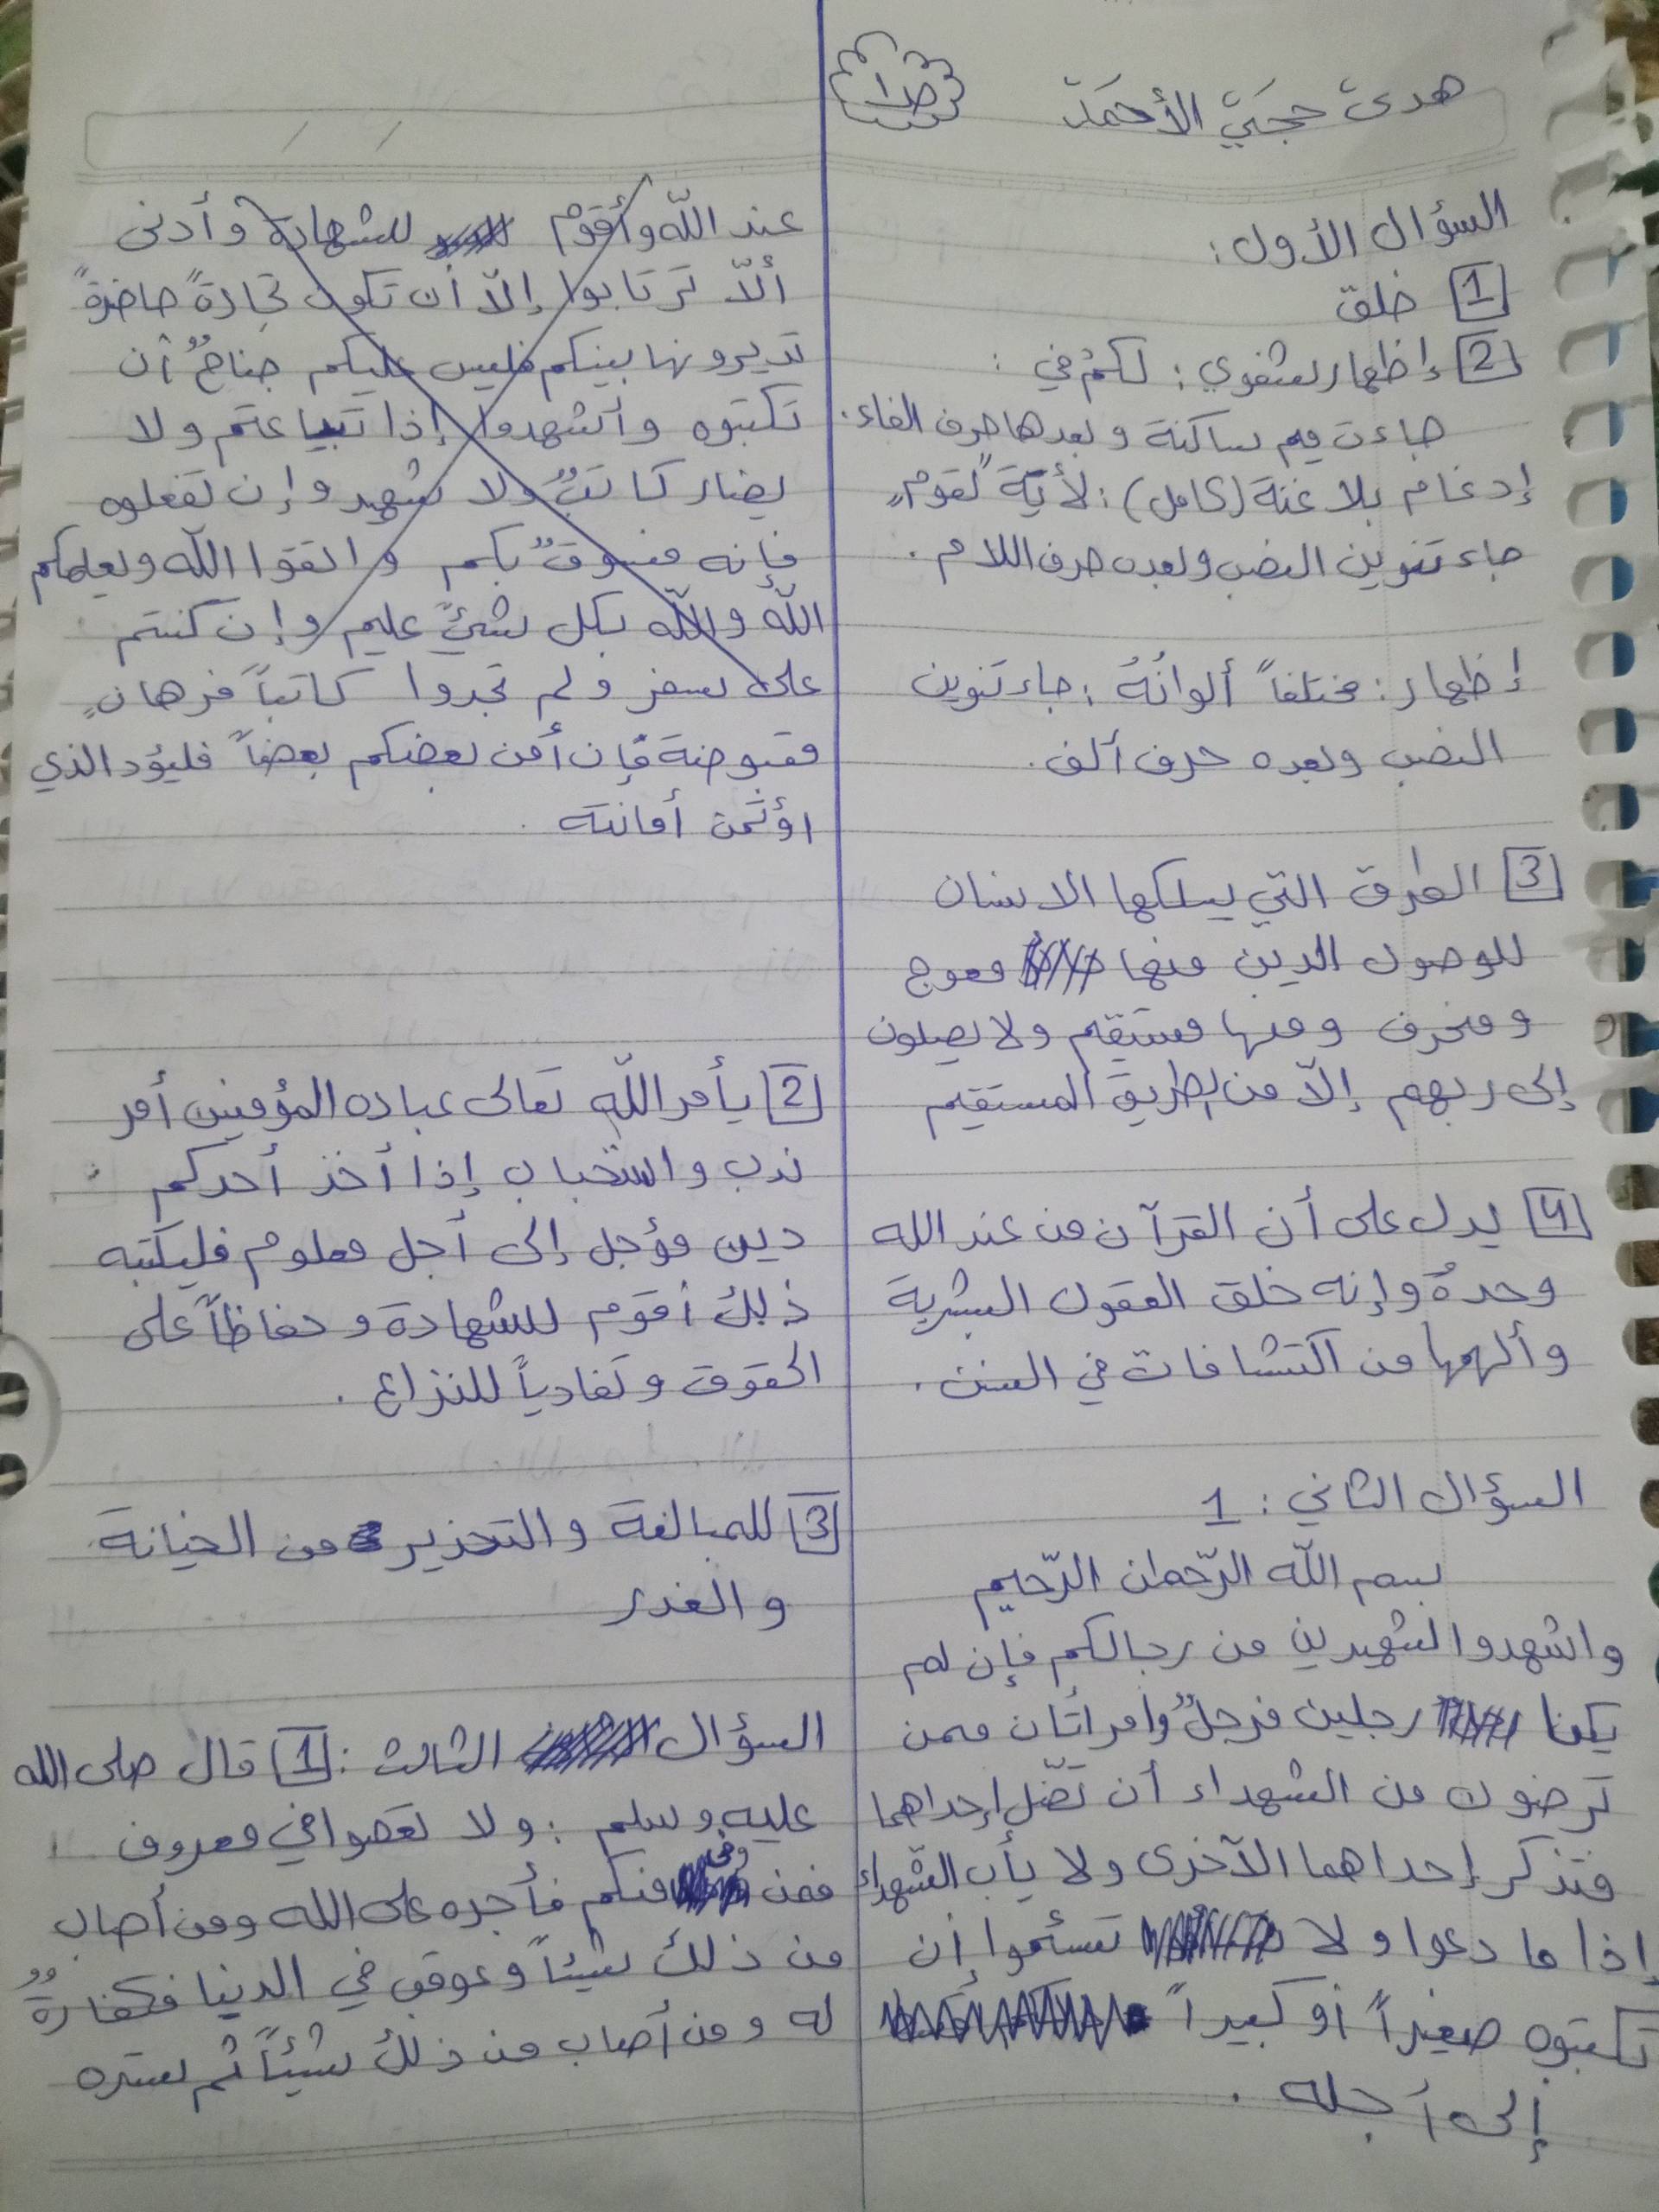 هدى حجي الأحمد
ص1
السؤال الأول:
1 خلق
2 إظهار شفوي: لكم في:
جاءت ميم ساكنة وبعدها حرف الفاء.
إدغام بلا غنة (كامل): لأيةً لقومٍ
جاء تنوين النصب وبعده حرف اللام.
إظهار: مختلفاً ألوانُهُ: جاء تنوين
النصب وبعده حرف ألف.
3 الطرق التي يسلكها الانسان
للوصول الدين منها معوج
ومنحرف ومنها مستقيم ولا يصلون
إلى ربهم إلّا من الطريق المستقيم
4 يدل على أن القرآن من عند الله
وحدهُ وإنه خلق العقول البشرية
وألهمها من اكتشافات في السنن.
السؤال الثاني: 1
بسم اللّه الرّحمان الرّحيم
واشهدوا شهيدين من رجالكم فإن لم
يكنا رجلين فرجلٌ وامرأتان ممن
ترضون من الشهداء أن تضّل إحداهما
فتذكر إحداهما الآخرى ولا يأب الشّهداء
إذا ما دعوا ولا تسئموا إن
تكتبوه صغيراً أو كبيراً
إلى أجله.
عند اللّه وأقوم للشهادة وأدنى
ألّا ترتابوا إلّا أن تكون تجارةً حاضرةً
تديرونها بينكم فليس عليكم جناحٌ أن
تكتبوه وأشهدوا إذا تبياعتم ولا
يضار كاتبٌ ولا شهيد وإن تفعلوه
فإنه فسوقٌ بكم واتقوا اللّه ويعلمكم
اللّه واللّه بكل شيءً عليم وإن كنتم
على سفر ولم تجدوا كاتباً فرهانٍ
مقبوضة فإن أمن بعضكم بعضاً فليؤد الذي
اؤتمن أمانته.
2 يأمر اللّه تعالى عباده المؤمنين أمر
ندب واستحباب إذا أخذ أحدكم
دين مؤجل إلى أجل معلوم فليكتبه
ذلك أقوم للشهادة وحفاظاً على
الحقوق وتفادياً للنزاع.
3 للمبالغة والتحذير من الخيانة
والغدر
السؤال الثالث: 1 قال صلى الله
عليه وسلم: ولا تعصوا في معروف
فمن وفى منكم فأجره على الله ومن أصاب
من ذلك شيئاً وعوقب في الدنيا فكفارةٌ
له ومن أصاب من ذلك شيئاً ثم ستره